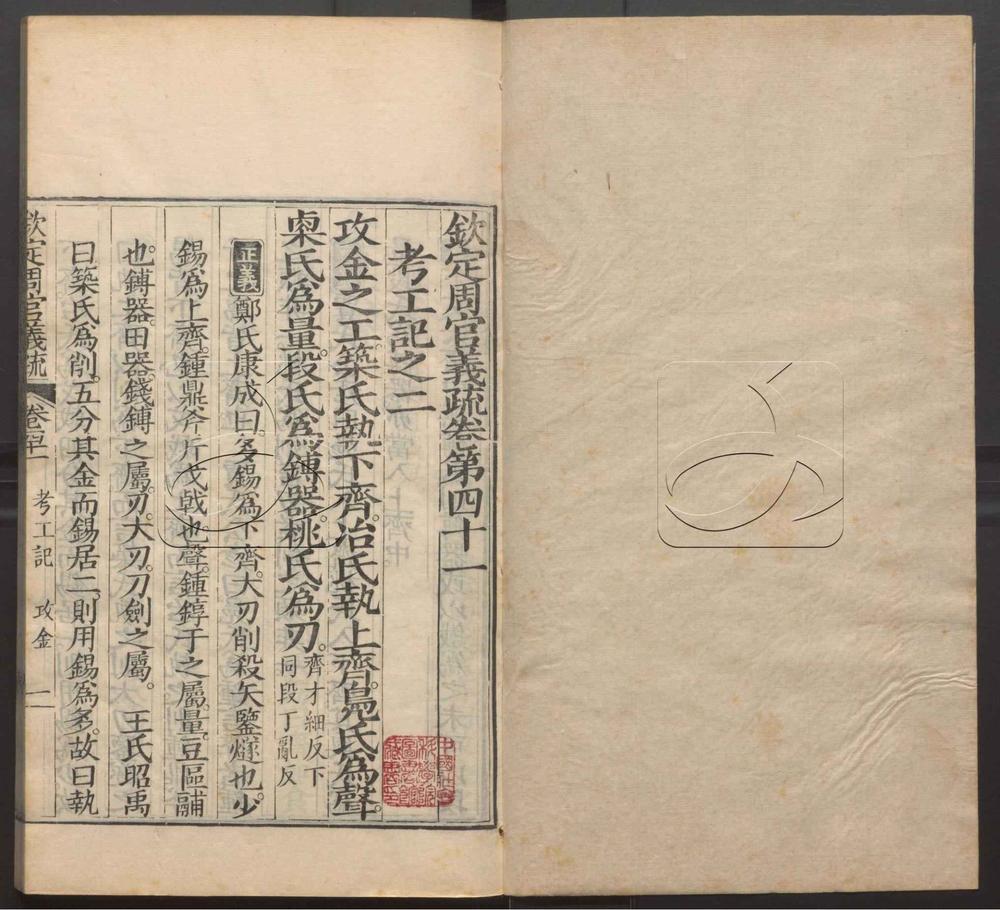 欽定周官義疏卷第四十一
考工記之二
攻金之工築氏執下齊冶氏執上齊鳧氏為聲
㮚氏為量段氏為鎛器桃氏為刃齊才細反下同段丁亂反
正義鄭氏康成曰多錫為下齊大刃削殺矢鑒燧也少
錫為上齊鍾鼎斧斤戈戟也聲鍾錞于之屬量豆區鬴
也鎛器田器錢鎛之屬刃大刃刀劍之屬 王氏昭禹
曰築氏為削五分其金而錫居二則用錫為多故曰執
欽定周官義疏 卷四十一 考工記 攻金 一